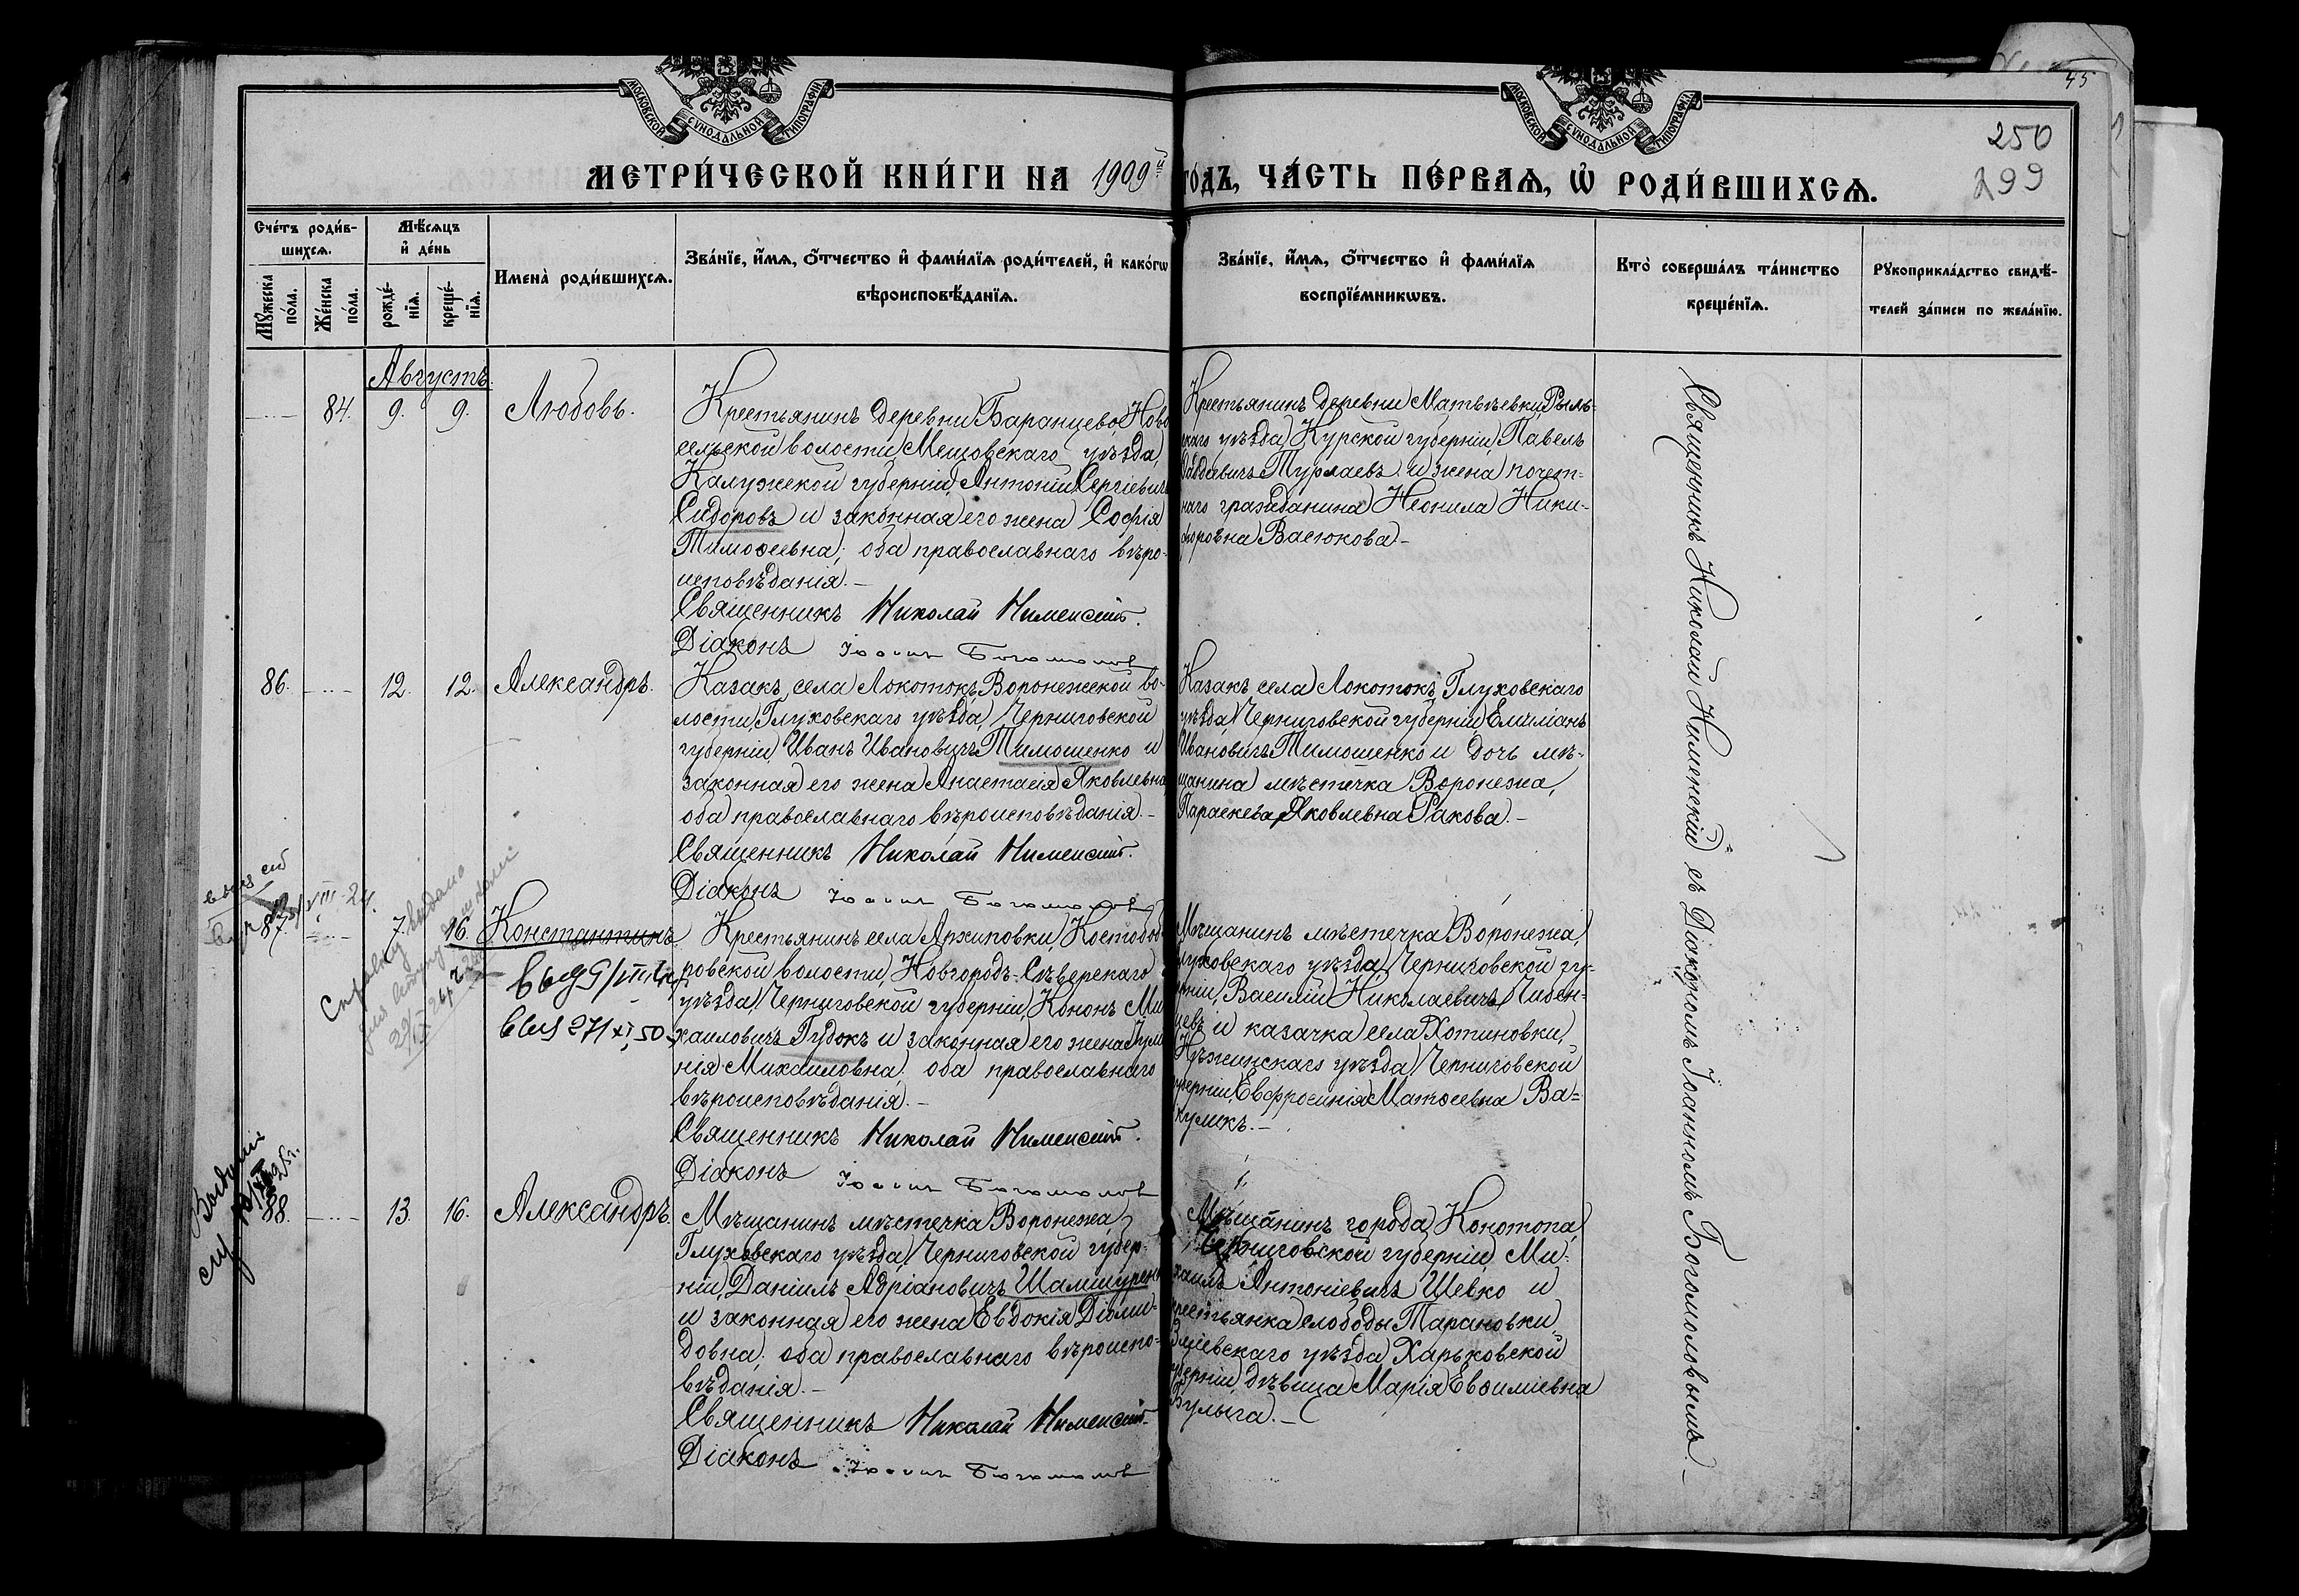 45
250
299
МОСКОВСКОЙ СѴНОДАЛЬНОЙ ТИПОГРАФІИ
МОСКОВСКОЙ СѴНОДАЛЬНОЙ ТИПОГРАФІИ
МЕТРИ́ЧЕСКОЙ КНИ́ГИ НА 1909й ГО́ДЪ, ЧА́СТЬ ПЕ́РВАѦ, Ѡ҆ РОДИ́ВШИХСѦ.
Сче́тъ роди́в-
шихсѧ.
Мꙋ́жеска
по́ла.
Же́нска
по́ла.
Мѣ́сѧцъ
и҆ де́нь
рожде́-
нїѧ.
креще́-
нїѧ.
Имена̀ роди́вшихсѧ.
Зва́нїе, и҆́мѧ, ѻ҆́тчество и҆ фами́лїѧ роди́телей, и҆ како́гѡ
вѣроисповѣ́данїѧ.
Зва́нїе, и҆́мѧ, ѻ҆́тчество и҆ фами́лїѧ
воспрїе́мникѡвъ.
Кто̀ соверша́лъ та́инство
креще́нїѧ.
Рꙋкоприкла́дство свидѣ́-
телей за́писи по жела́нїю.
Августъ.
84. 9. 9. Любовь.
Крестьянинъ деревни Баранцево, Ново
сельской волости, Мещовскаго уѣзда,
Калужской губерніи, Антоній Сергіевичъ
Сидоровъ и законная его жена Софія
Тимоѳеевна; оба православнаго вѣро-
исповѣданія.-
Священникъ Николай Нименскій.
Діаконъ Іоаннъ Богомоловъ
Крестьянинъ деревни Матвѣевки, Рыль-
скаго уѣзда, Курской губерніи, Павелъ
Турлаевъ и жена почет-
наго гражданина Неонила Ники-
форовна Васюкова.-
86. 12. 12. Александръ.
Казакъ села Локотокъ, Воронежской во-
лости, Глуховскаго уѣзда, Черниговской
губерніи, Иванъ Ивановичъ Тимошенко и
законная его жена Анастасія Яковлевна,
оба православнаго вѣроисповѣданія.-
Священникъ Николай Нименскій.
Діаконъ Іоаннъ Богомоловъ
Казакъ села Локотокъ, Глуховскаго
уѣзда, Черниговской губерніи, Емиліанъ
Ивановичъ Тимошенко и дочь мѣ-
щанина мѣстечка Воронежа,
Параскева Яковлевна Ракова.-
87. 7. 16. Константинъ.
Справку выдано
выд 9/VIII
выд 27/XI 50
Крестьянинъ села Архиповки, Костобоб
ровской волости, Новгородъ-Сѣверскаго
уѣзда, Черниговской губерніи, Кононъ Ми
хаиловичъ Гудокъ и законная его жена Іуліа
нія Михаиловна; оба православнаго
вѣроисповѣданія.-
Священникъ Николай Нименскій.
Діаконъ Іоаннъ Богомоловъ
Мѣщанинъ мѣстечка Воронежа,
Глуховскаго уѣзда, Черниговской гу-
берніи, Василій Николаевичъ
и казачка села Хотиновки,
Нѣжинскаго уѣзда, Черниговской
губерніи, Евфросинія Матѳеевна Ва=
куликъ.-
88. 13. 16. Александръ.
Мѣщанинъ мѣстечка Воронежа,
Глуховскаго уѣзда, Черниговской губер-
ніи, Даніилъ Адріановичъ Шамшурен
и законная его жена Евдокія Діоми-
довна; оба православнаго вѣроиспо-
вѣданія.-
Священникъ Николай Нименскій.
Діаконъ Іоаннъ Богомоловъ
Мѣщанинъ города Конотопа,
Черниговской губерніи, Ми-
хаилъ Антоніевичъ Шевко и
крестьянка слободы Тарановки,
Зміевскаго уѣзда, Харьковской
губерніи, дѣвица Марія Евѳиміевна
Булыга.-
Священникъ Николай Нименскій съ Діакономъ Іоанномъ Богомоловымъ.-